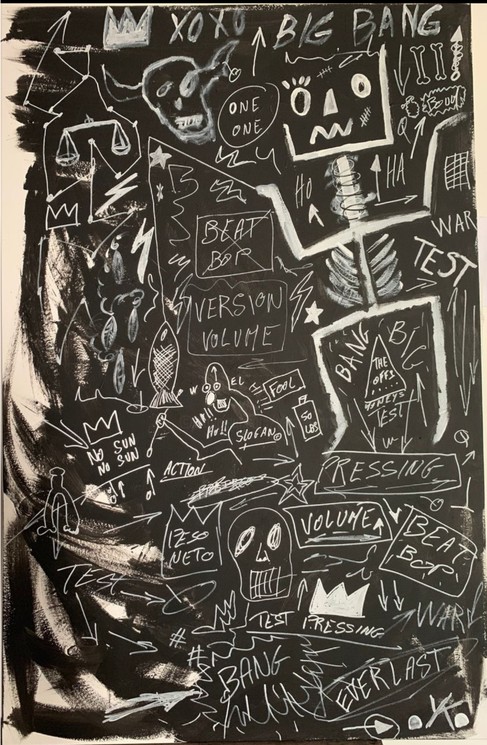 XOXO
BIG BANG
ONE
ONE
HO
HA
WAR
TEST
BEAT
BOP
VERSION
VOLUME
BANG
BIG
THE
TEST
EL
FOOL
HA!!
SLOGAN
50
LBS
NO SUN
NO SUN
ACTION
PRESSING
PESO
NETO
VOLUME
BEAT
BOP
TEST
TEST PRESSING
WAR
#
#
BANG
EVERLAST